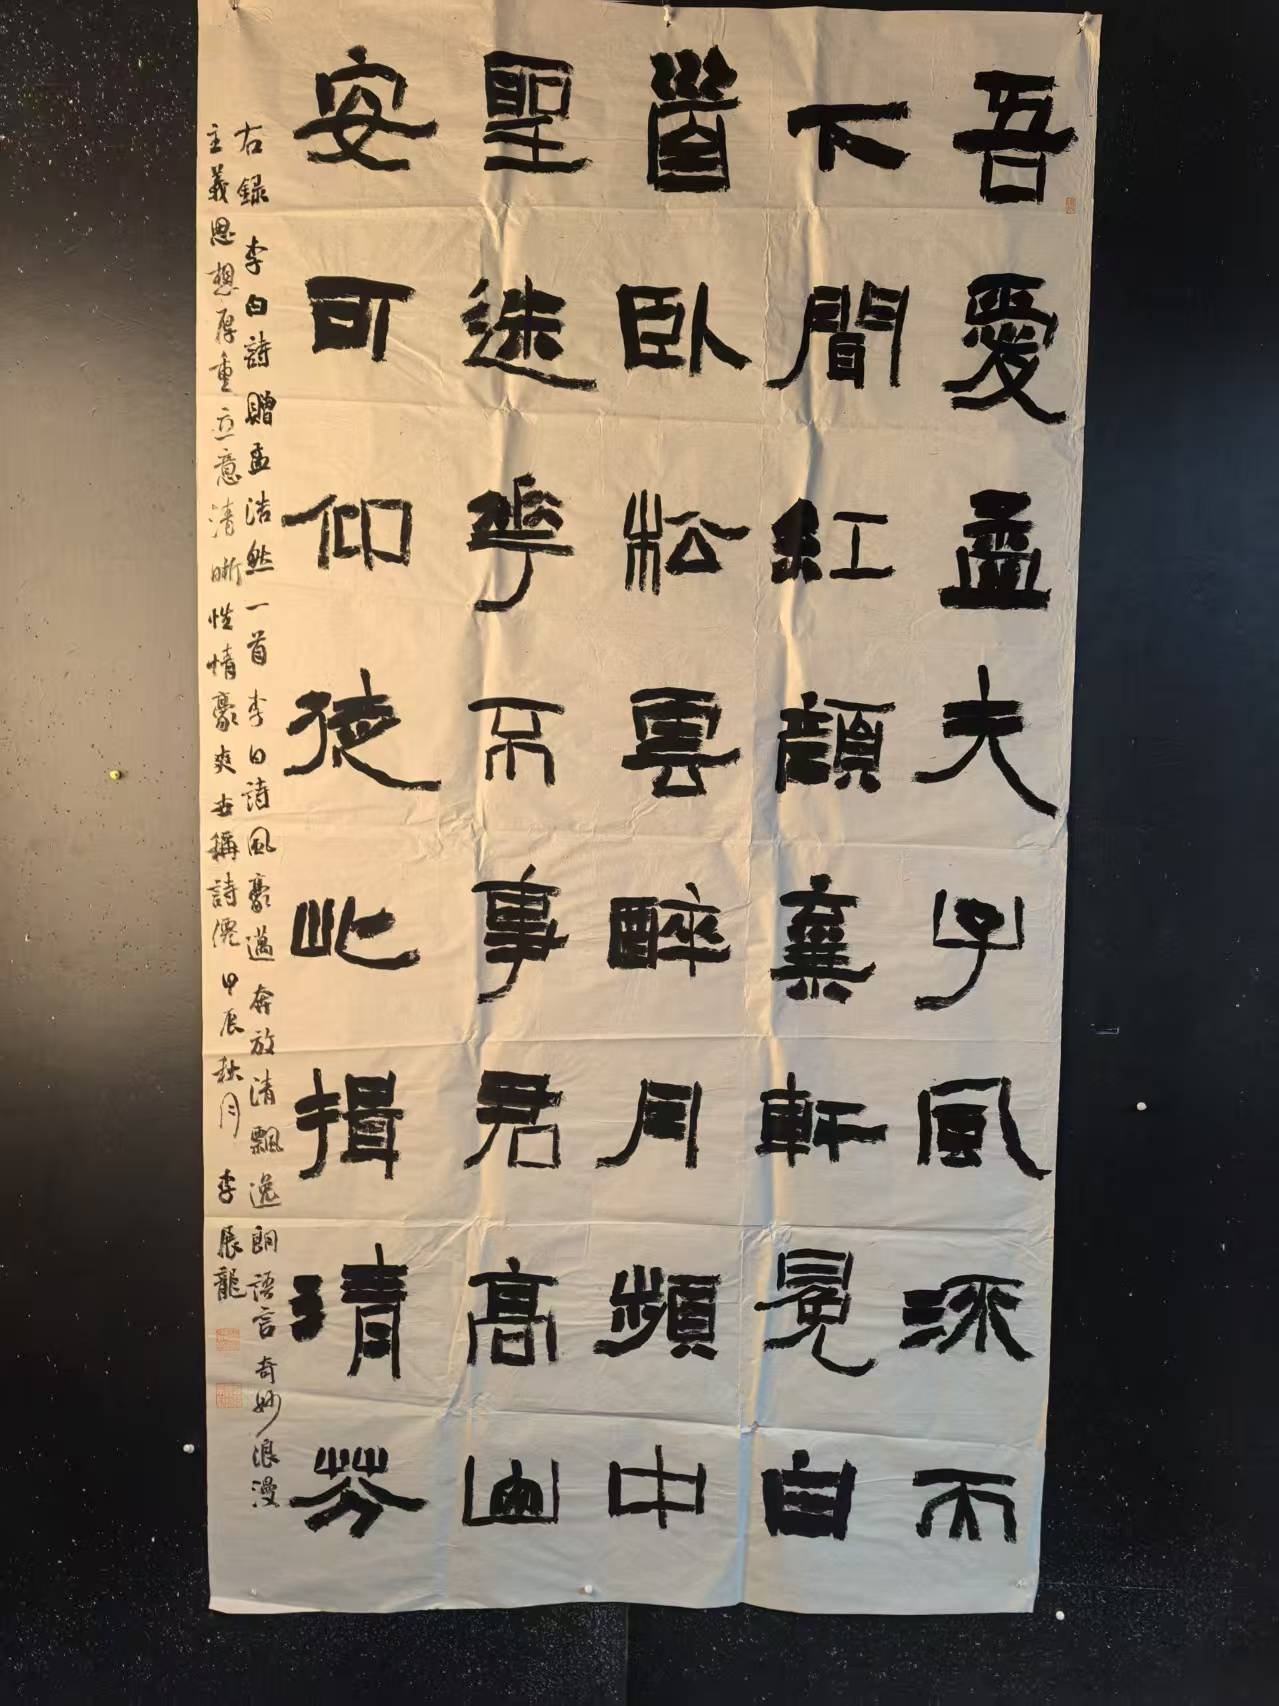 吾愛孟夫子風流天
下聞紅顏棄軒冕白
首臥松雲醉月頻中
聖迷花不事君高山
安可仰徒此揖清芬
右録李白詩贈孟浩然一首李白詩風豪邁奔放清飄逸朗語言奇妙浪漫
主義思想厚重立意清晰性情豪爽世稱詩僊甲辰秋月李展龍